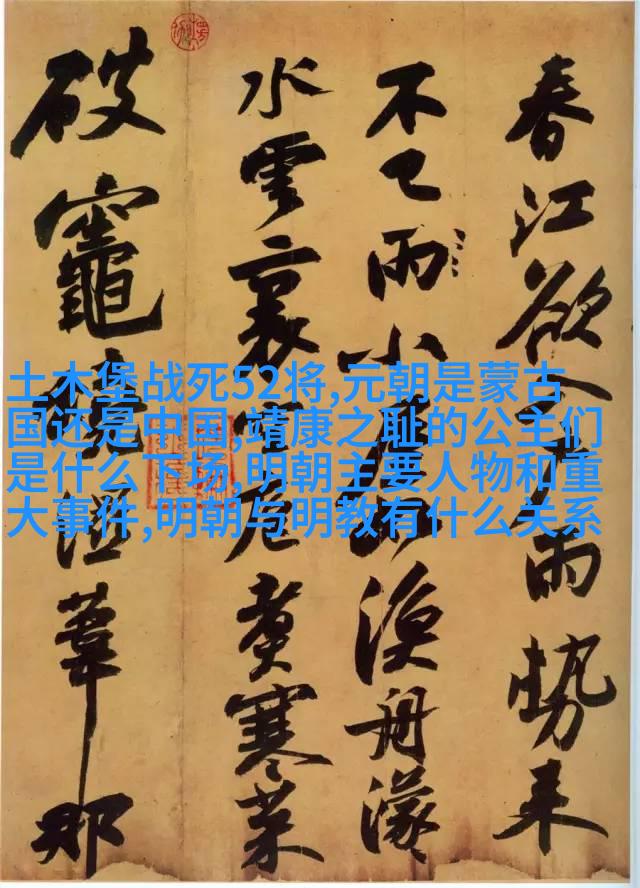 春江欲入戶雨勢来
不已雨小屋如漁舟濛
水雲裏空庖煑寒菜
破竈燒濕葦那
土木堡战死52将,元朝是蒙古
国还是中国,靖康之耻的公主们
是什么下场,明朝主要人物和重
大事件,明朝与明教有什么关系